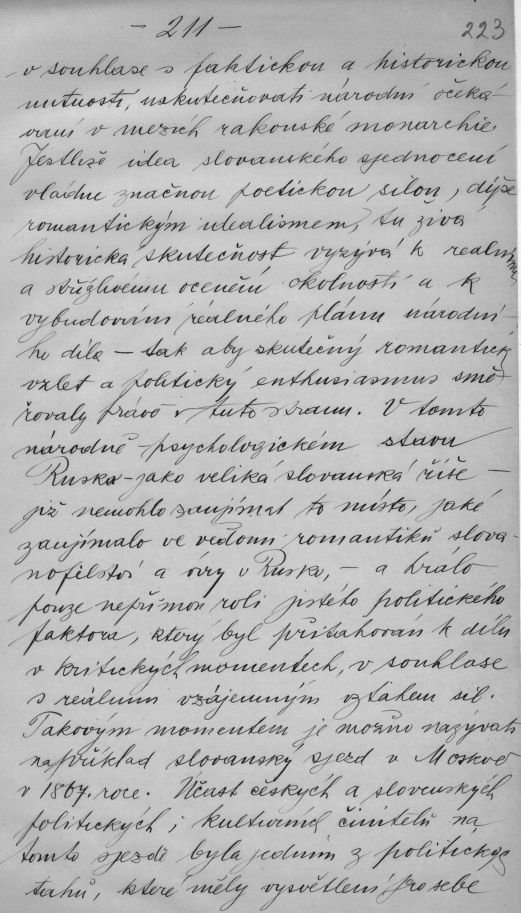 - 211 -
223
v souhlase s faktickou a historickou
nutností, uskutečňovati národní očeká-
vání v mezích rakouské monarchie.
Jestliže idea slovanského sjednocení
vládne značnou poetickou silou, dýše
romantickým idealismem, tu živá
historická skutečnost vyzývá k realnímu
a střízlivému ocenění okolností a k
vybudování reálného plánu národní-
ho díla – tak aby skutečný romantický
vzlet a politický enthusiasmus smě-
řovaly právě v tuto stranu. V tomto
národně-psychologickém stavu
Rusko – jako veliká slovanská říše –
již nemohlo zaujímat to místo, jaké
zaujímalo ve vědomí romantiků slova-
nofilství a víry v Rusko, – a hrálo
pouze nepřímou roli jistého politického
faktora, který byl přitahován k dílu
v kritických momentech, v souhlase
s reálním vzájemným vztahem sil.
Takovým momentem je možno nazývati
například slovanský sjezd v Moskvě
v 1867. roce. Účast českých a slovenských
politických i kulturních činitelů na
tomto sjezdě byla jedním z politických
tahů, které měly vysvětlení pro sebe